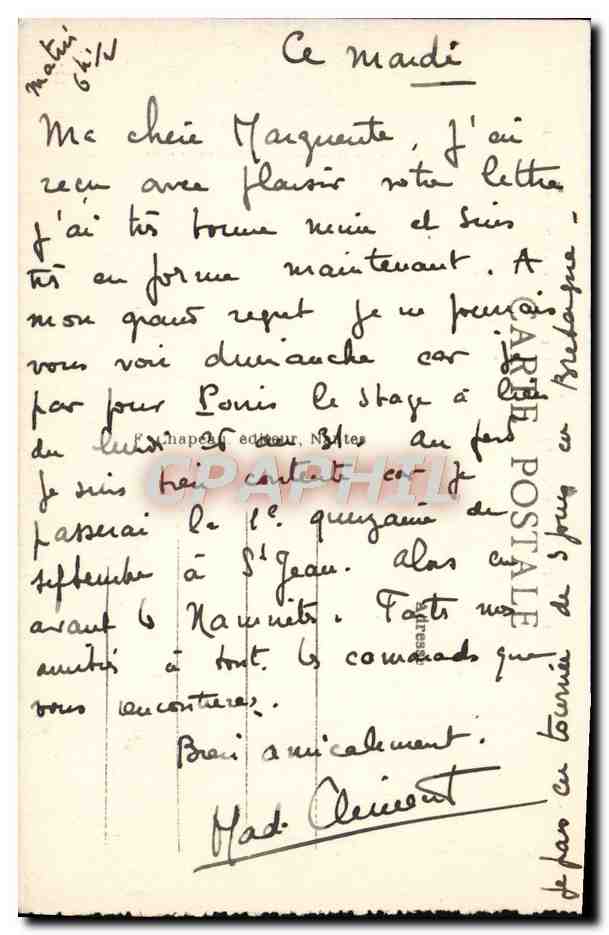 Ce mardi
matin
6h1/2
Ma chère Marguerite, j'ai
reçu avec plaisir votre lettre
j'ai très bonne mine et suis
très en forme maintenant. A
mon grand regret je ne pourrais
vous voir dimanche car je
pars pour Paris le stage à lieu
du lundi 26 au 31. au fond
je suis bien contente car je
passerai la 1e quinzaine de
septembre à St Jean. Alors en
avant les Nannets. Faits mes
amitiés à tout les camarads que
vous rencontrerez.
Bien amicalement.
Mad. Clement
je pars en tournée de 3 jours en Bretagne-
CARTE POSTALE
Adresse
F. Chapeau, editeur, Nantes
CPAPHIL